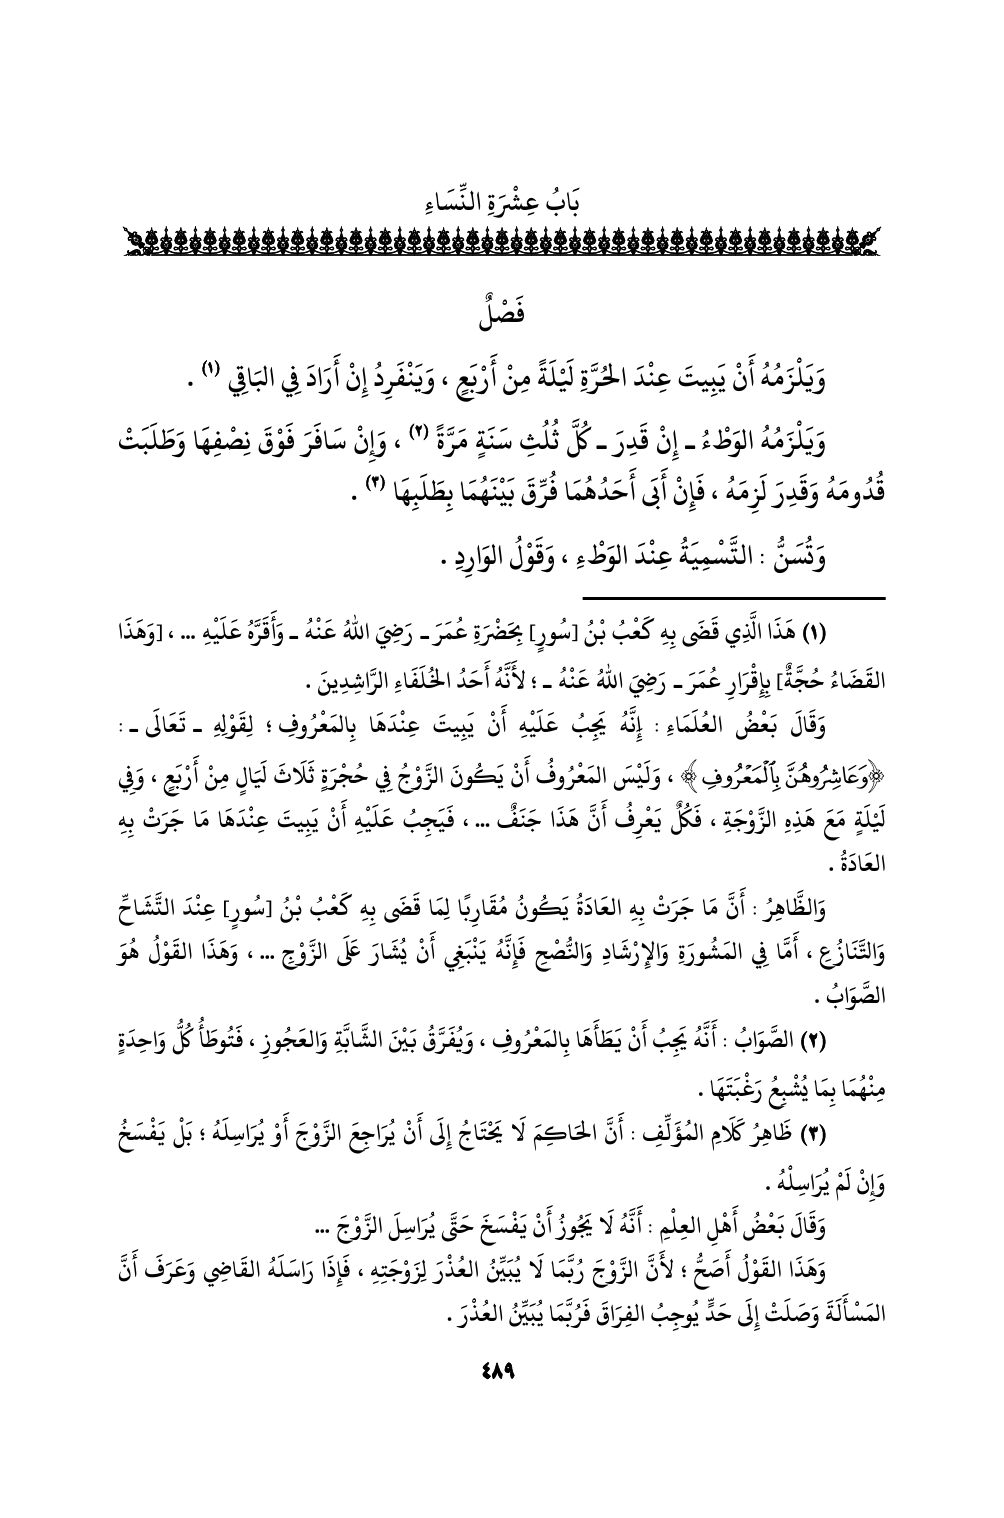 بَابُ عِشْرَةِ النِّسَاءِ
فَصْلٌ
وَيَلْزَمُهُ أَنْ يَبِيتَ عِنْدَ الحُرَّةِ لَيْلَةً مِنْ أَرْبَعٍ ، وَيَنْفَرِدُ إِنْ أَرَادَ فِي البَاقِي (١) .
وَيَلْزَمُهُ الوَطْءُ ـ إِنْ قَدِرَ ـ كُلَّ ثُلُثِ سَنَةٍ مَرَّةً (٢) ، وَإِنْ سَافَرَ فَوْقَ نِصْفِهَا وَطَلَبَتْ
قُدُومَهُ وَقَدِرَ لَزِمَهُ ، فَإِنْ أَبَى أَحَدُهُمَا فُرِّقَ بَيْنَهُمَا بِطَلَبِهَا (٣) .
وَتُسَنُّ : التَّسْمِيَةُ عِنْدَ الوَطْءِ ، وَقَوْلُ الوَارِدِ .
(١) هَذَا الَّذِي قَضَى بِهِ كَعْبُ بْنُ [سُورٍ] بِحَضْرَةِ عُمَرَ ـ رَضِيَ اللهُ عَنْهُ ـ وَأَقَرَّهُ عَلَيْهِ ... ، [وَهَذَا
القَضَاءُ حُجَّةٌ] بِإِقْرَارِ عُمَرَ ـ رَضِيَ اللهُ عَنْهُ ـ ؛ لأَنَّهُ أَحَدُ الخُلَفَاءِ الرَّاشِدِينَ .
وَقَالَ بَعْضُ العُلَمَاءِ : إِنَّهُ يَجِبُ عَلَيْهِ أَنْ يَبِيتَ عِنْدَهَا بِالمَعْرُوفِ ؛ لِقَوْلِهِ ـ تَعَالَى ـ :
﴿وَعَاشِرُوهُنَّ بِٱلْمَعْرُوفِ﴾ ، وَلَيْسَ المَعْرُوفُ أَنْ يَكُونَ الزَّوْجُ فِي حُجْرَةٍ ثَلَاثَ لَيَالٍ مِنْ أَرْبَعٍ ، وَفِي
لَيْلَةٍ مَعَ هَذِهِ الزَّوْجَةِ ، فَكُلٌّ يَعْرِفُ أَنَّ هَذَا جَنَفٌ ... ، فَيَجِبُ عَلَيْهِ أَنْ يَبِيتَ عِنْدَهَا مَا جَرَتْ بِهِ
العَادَةُ .
وَالظَّاهِرُ : أَنَّ مَا جَرَتْ بِهِ العَادَةُ يَكُونُ مُقَارِبًا لِمَا قَضَى بِهِ كَعْبُ بْنُ [سُورٍ] عِنْدَ التَّشَاحِّ
وَالتَّنَازُعِ ، أَمَّا فِي المَشُورَةِ وَالإِرْشَادِ وَالنُّصْحِ فَإِنَّهُ يَنْبَغِي أَنْ يُشَارَ عَلَى الزَّوْجِ ... ، وَهَذَا القَوْلُ هُوَ
الصَّوَابُ .
(٢) الصَّوَابُ : أَنَّهُ يَجِبُ أَنْ يَطَأَهَا بِالمَعْرُوفِ ، وَيُفَرَّقُ بَيْنَ الشَّابَّةِ وَالعَجُوزِ ، فَتُوطَأُ كُلُّ وَاحِدَةٍ
مِنْهُمَا بِمَا يُشْبِعُ رَغْبَتَهَا .
(٣) ظَاهِرُ كَلَامِ المُؤَلِّفِ : أَنَّ الحَاكِمَ لَا يَحْتَاجُ إِلَى أَنْ يُرَاجِعَ الزَّوْجَ أَوْ يُرَاسِلَهُ ؛ بَلْ يَفْسَخُ
وَإِنْ لَمْ يُرَاسِلْهُ .
وَقَالَ بَعْضُ أَهْلِ العِلْمِ : أَنَّهُ لَا يَجُوزُ أَنْ يَفْسَخَ حَتَّى يُرَاسِلَ الزَّوْجَ ...
وَهَذَا القَوْلُ أَصَحُّ ؛ لأَنَّ الزَّوْجَ رُبَّمَا لَا يُبَيِّنُ العُذْرَ لِزَوْجَتِهِ ، فَإِذَا رَاسَلَهُ القَاضِي وَعَرَفَ أَنَّ
المَسْأَلَةَ وَصَلَتْ إِلَى حَدٍّ يُوجِبُ الفِرَاقَ فَرُبَّمَا يُبَيِّنُ العُذْرَ .
٤٨٩